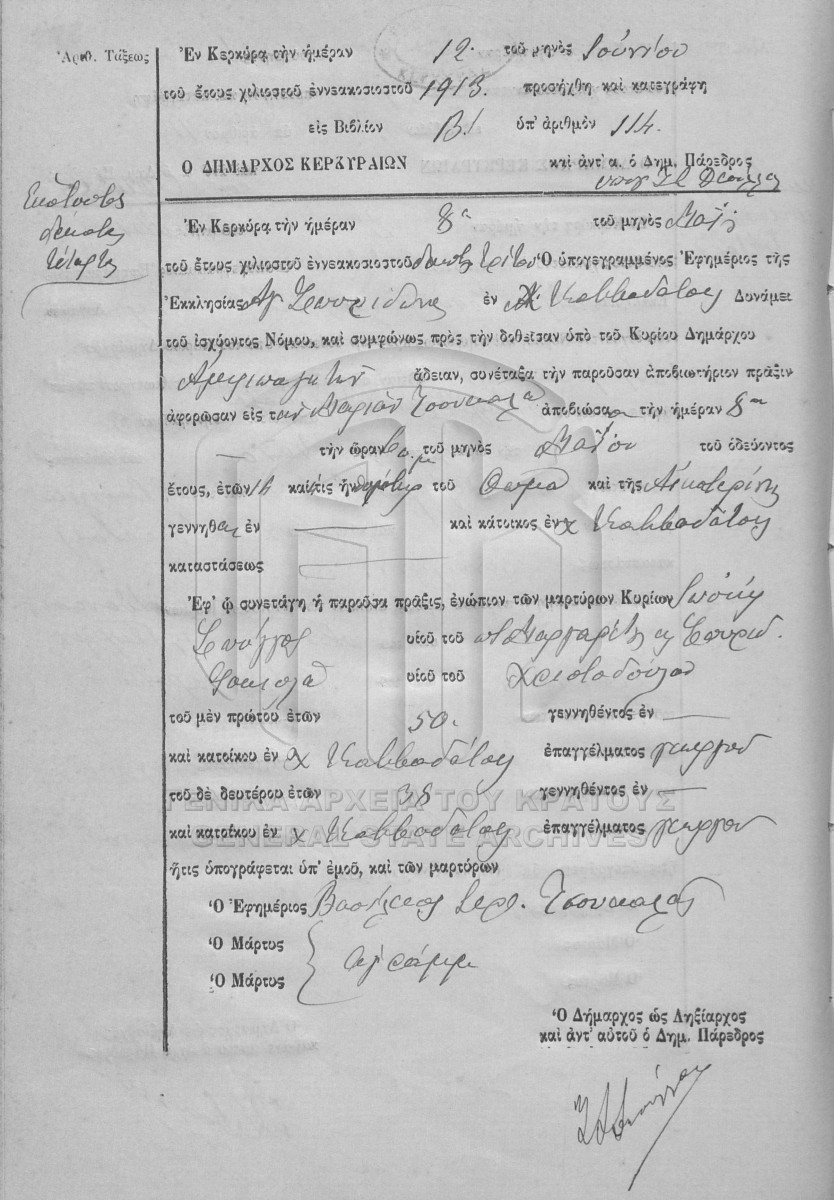 Ἀριθ. Τάξεως
Ἐν Κερκύρᾳ τὴν ἡμέραν 12 τοῦ μηνὸς Ἰουνίου
τοῦ ἔτους χιλιοστοῦ ἐννεακοσιοστοῦ 1913. προσήχθη καὶ κατεγράφη
εἰς Βιβλίον Β! ὑπ' ἀριθμὸν 114.
Ὁ ΔΗΜΑΡΧΟΣ ΚΕΡΚΥΡΑΙΩΝ καὶ ἀντ' α. ὁ Δημ. Πάρεδρος
Εκατοστός
δέκατος
τέταρτος
Ἐν Κερκύρᾳ τὴν ἡμέραν 8η τοῦ μηνὸς Μαΐου
τοῦ ἔτους χιλιοστοῦ ἐννεακοσιοστοῦ Ὁ ὑπογεγραμμένος Ἐφημέριος τῆς
Ἐκκλησίας Αγ Σπυρίδωνος ἐν χ. Καββαδάτους Δυνάμει
τοῦ ἰσχύοντος Νόμου, καὶ συμφώνως πρὸς τὴν δοθεῖσαν ὑπὸ τοῦ Κυρίου Δημάρχου
ἄδειαν, συνέταξα τὴν παροῦσαν ἀποβιωτήριον πρᾶξιν
ἀφορῶσαν εἰς την Μαρίαν Τσουκαλᾶ ἀποβιώσασαν τὴν ἡμέραν 8ην
τὴν ὥραν τοῦ μηνὸς Μαΐου τοῦ ὁδεύοντος
ἔτους, ἐτῶν 16 καὶ τίς ἦν θυγάτηρ τοῦ Θωμᾶ καὶ τῆς Αἰκατερίνης
γεννηθεῖσα ἐν — καὶ κάτοικος ἐν χ Καββαδάτους
καταστάσεως —
Ἐφ' ᾧ συνετάγη ἡ παροῦσα πρᾶξις, ἐνώπιον τῶν μαρτύρων Κυρίων
Σπύγγος υἱοῦ τοῦ π Μαργαρίτη κ Σπυρίδ.
υἱοῦ τοῦ Χριστοδούλου
τοῦ μὲν πρώτου ἐτῶν 50. γεννηθέντος ἐν —
καὶ κατοίκου ἐν χ Καββαδάτους ἐπαγγέλματος γεωργοῦ
τοῦ δὲ δευτέρου ἐτῶν 38 γεννηθέντος ἐν —
καὶ κατοίκου ἐν χ Καββαδάτους ἐπαγγέλματος γεωργοῦ
ἥτις ὑπογράφεται ὑπ' ἐμοῦ, καὶ τῶν μαρτύρων
Ὁ Ἐφημέριος Βασίλειος Ιερ. Τσουκαλάς
Ὁ Μάρτυς
Ὁ Μάρτυς
αγράμμ
Ὁ Δήμαρχος ὡς Ληξίαρχος
καὶ ἀντ' αὐτοῦ ὁ Δημ. Πάρεδρος
ΓΕΝΙΚΑ ΑΡΧΕΙΑ ΤΟΥ ΚΡΑΤΟΥΣ
GENERAL STATE ARCHIVES